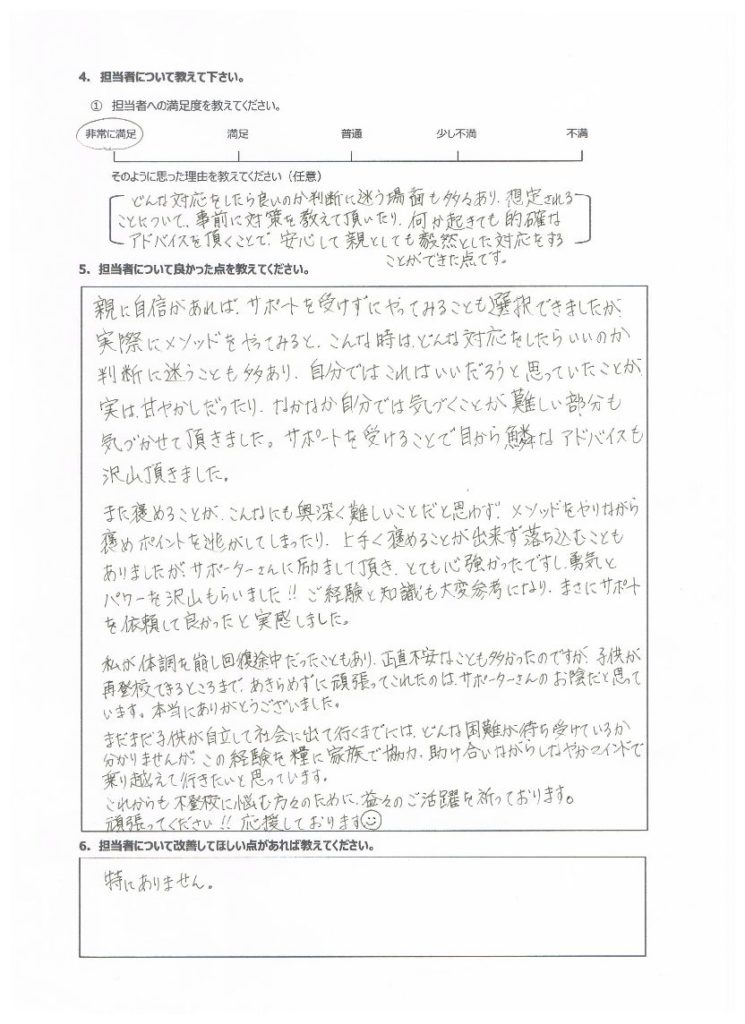 4. 担当者について教えて下さい。
① 担当者への満足度を教えてください。
非常に満足 満足 普通 少し不満 不満
そのように思った理由を教えてください（任意）
どんな対応をしたら良いのか判断に迷う場面も多々あり、想定される
ことについて、事前に対策を教えて頂いたり、何か起きても的確な
アドバイスを頂くことで、安心して親としても毅然とした対応をする
ことができた点です。
5. 担当者について良かった点を教えてください。
親に自信があれば、サポートを受けずにやってみることも選択できましたが、
実際にメソッドをやってみると、こんな時は、どんな対応をしたらいいのか
判断に迷うことも多々あり、自分ではこれはいいだろうと思っていたことが、
実は、甘やかしだったり、なかなか自分では気づくことが難しい部分も
気づかせて頂きました。サポートを受けることで目から鱗なアドバイスも
沢山頂きました。
また褒めることが、こんなにも奥深く難しいことだと思わず、メソッドをやりながら
褒めポイントを逃がしてしまったり、上手く褒めることが出来ず落ち込むことも
ありましたが、サポーターさんに励まして頂き、とても心強かったですし、勇気と
パワーを沢山もらいました!! ご経験と知識も大変参考になり、まさにサポート
を依頼して良かったと実感しました。
私が体調を崩し回復途中だったこともあり、正直不安なことも多かったのですが、子供が
再登校できるところまで、あきらめずに頑張ってこれたのは、サポーターさんのお陰だと思って
います。本当にありがとうございました。
まだまだ子供が自立して社会に出て行くまでには、どんな困難が待ち受けているか
分かりませんが、この経験を糧に家族で協力、助け合いながらしなやかマインドで
乗り越えて行きたいと思っています。
これからも不登校に悩む方々のために、益々のご活躍を祈っております。
頑張ってください!! 応援しております☺
6. 担当者について改善してほしい点があれば教えてください。
特にありません。